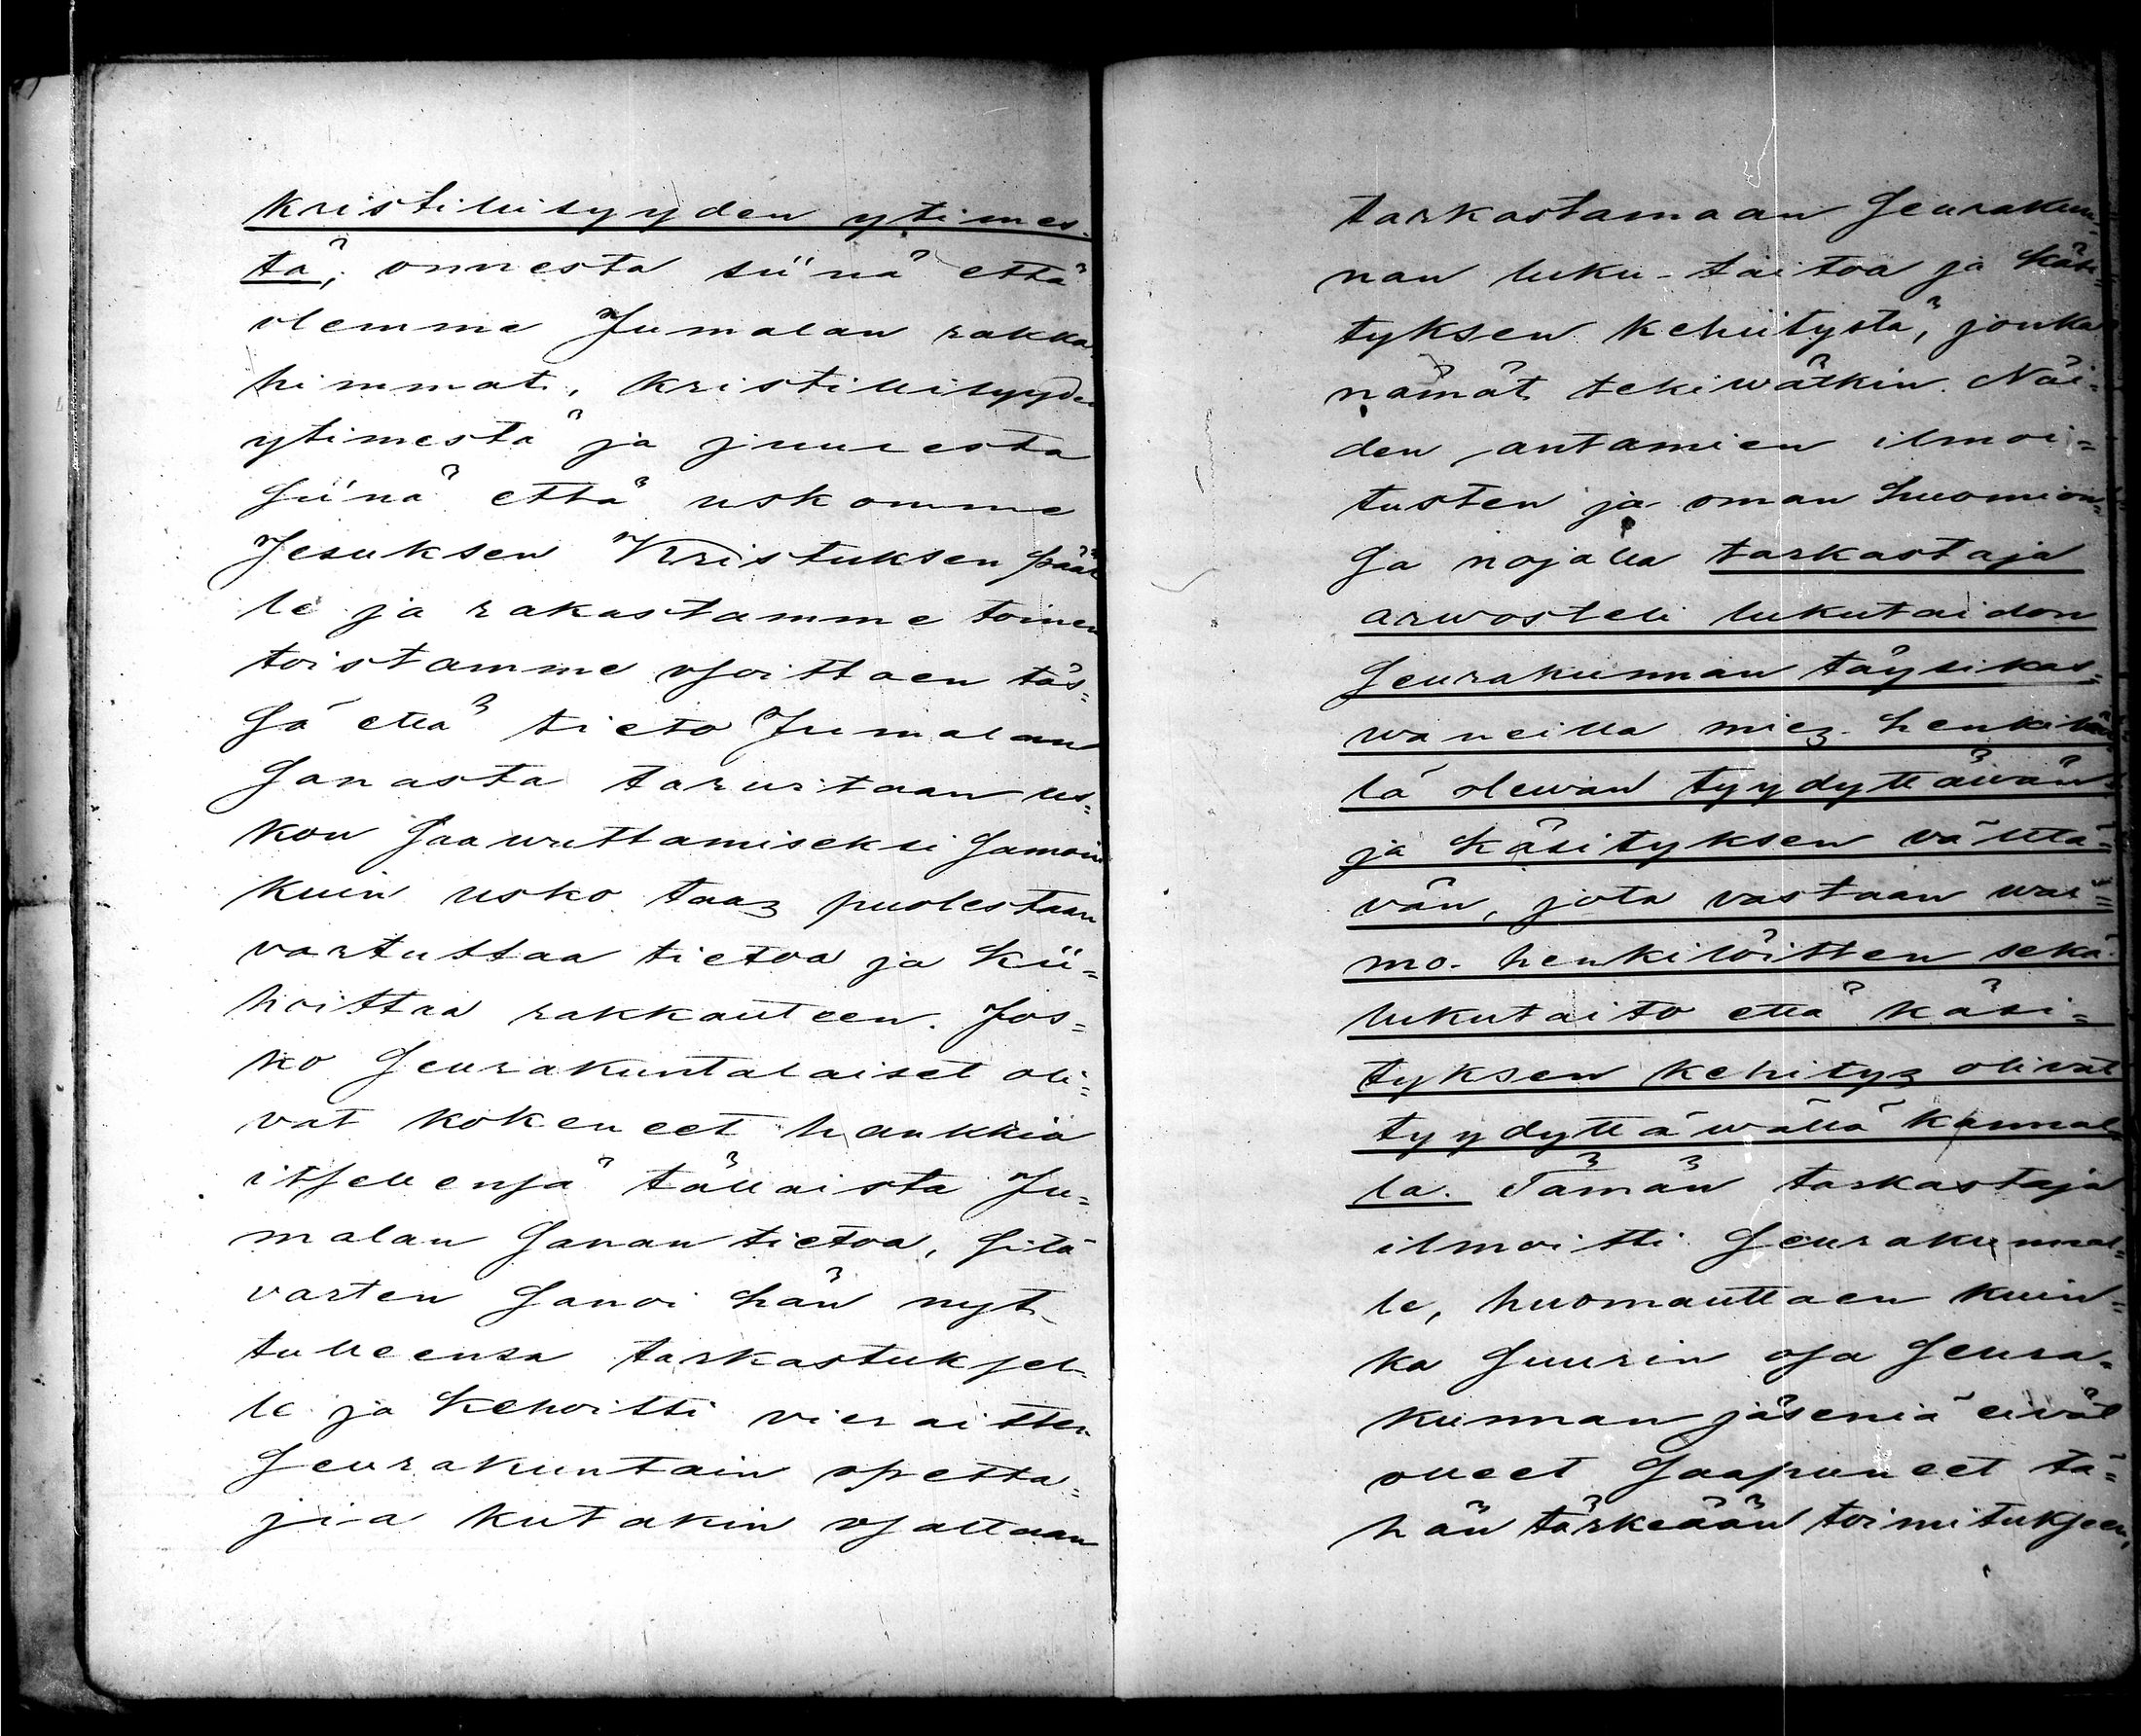 kristillisyyden ytimes-
tä; onnesta siinä että
olemme Jumalan rakka-
himmat, kristillisyyden
ytimestä ja juuresta
siinä että uskomme
Jesuksen Kristuksen pääl
le ja rakastamme toinen
toistamme osoittaen täs=
sä että tieto Jumalan
sanasta tarvitaan us=
kon saavuttamiseksi samoin
kuin usko taas puolestaan
vartuttaa tietoa ja kii=
hoittaa rakkauteen. Jos=
ko seurakuntalaiset oli=
vat kokeneet hankkia
itsellensä tällaista Ju=
malan sanan tietoa, sitä
varten sanoi hän nyt
tulleensa tarkastuksel-
le ja kehoitti vieraitten
seurakuntain opetta=
jia kutakin osaltaan
tarkastamaan seurakun-
nan luku-taitoa ja käsi=
tyksen kehiitystä, jonka
nämät tekiwätkin. Näi=
den antamien ilmoi=
tusten ja oman huomion=
sa nojalla tarkastaja
arwosteli lukutaidon
seurakunnan täysikas=
waneilla mies-henkilöil
lä olewan tyydyttäwän
ja käsityksen vältta=
vän, jota vastaan wai=
mo-henkilöitten sekä
lukutaito että käsi=
tyksen kehitys olivat
tyydyttäwällä kannal-
la. Tämän tarkastaja
ilmoitti seurakunnal=
le, huomauttaen kuin=
ka suurin osa seura=
kunnan jäseniä eivät
olleet saapuneet tä=
hän tärkeään toimitukseen,